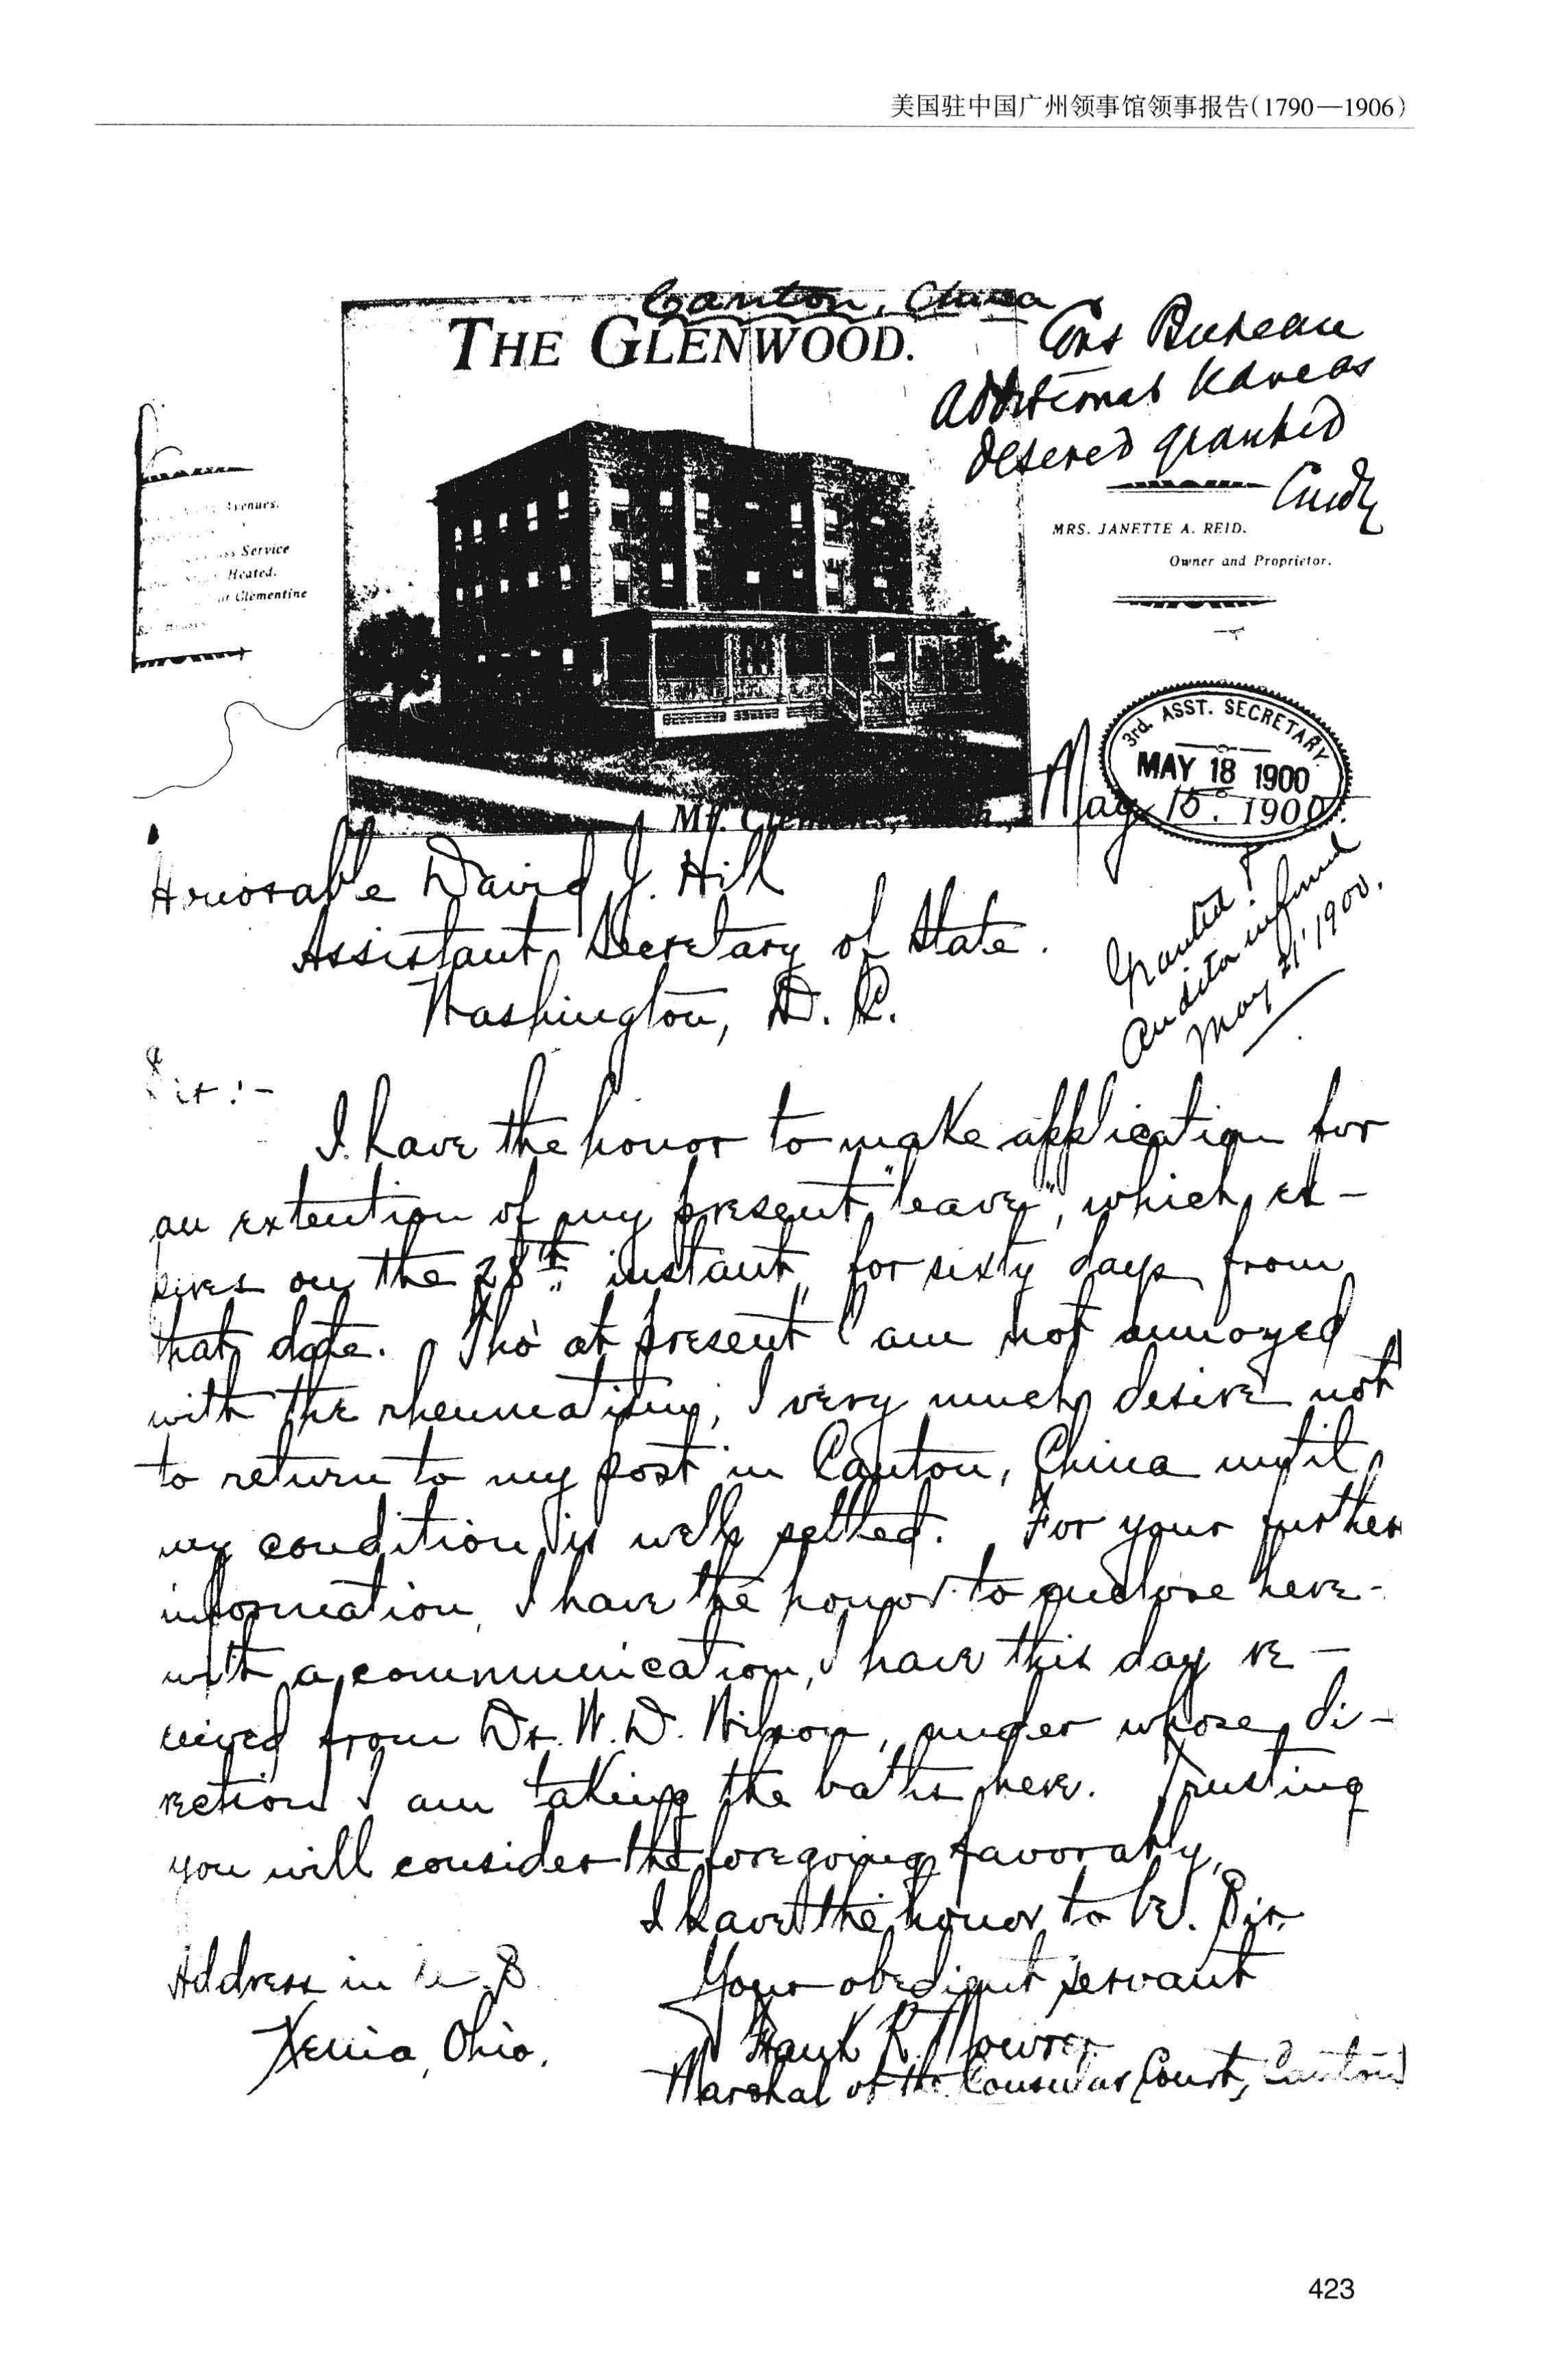 美国驻中国广州领事馆领事报告(1790—1906)
Canton, China
THE GLENWOOD.
Cons Bureau
Additional leave as
desired granted
Cridler
Avenues.
Service
Heated.
Clementine
MRS. JANETTE A. REID.
Owner and Proprietor.
3rd. ASST. SECRETARY.
MAY 18 1900
Mt. Clemens, Mich., May 15. 1900.
Granted &
Auditor informed
May 21, 1900.
Honorable David J. Hill
Assistant Secretary of State.
Washington, D. C.
Sir:-
I have the honor to make application for
an extention of my present "leave", which ex-
pires on the 28th. instant, for sixty days from
that date. Tho' at present I am not annoyed
with the rheumatism, I very much desire not
to return to my post in Canton, China until
my condition is well settled. For your further
information, I have the honor to enclose here-
with a communication, I have this day re-
ceived from Dr. W. D. Wilson, under whose di-
rection I am taking the baths here. Trusting
you will consider the foregoing favorably,
I have the honor to be. Sir,
Your obedient servant
Frank R. Mowrer
Marshal of the Consular Court, Canton
Address in U. S.
Xenia, Ohio.
423